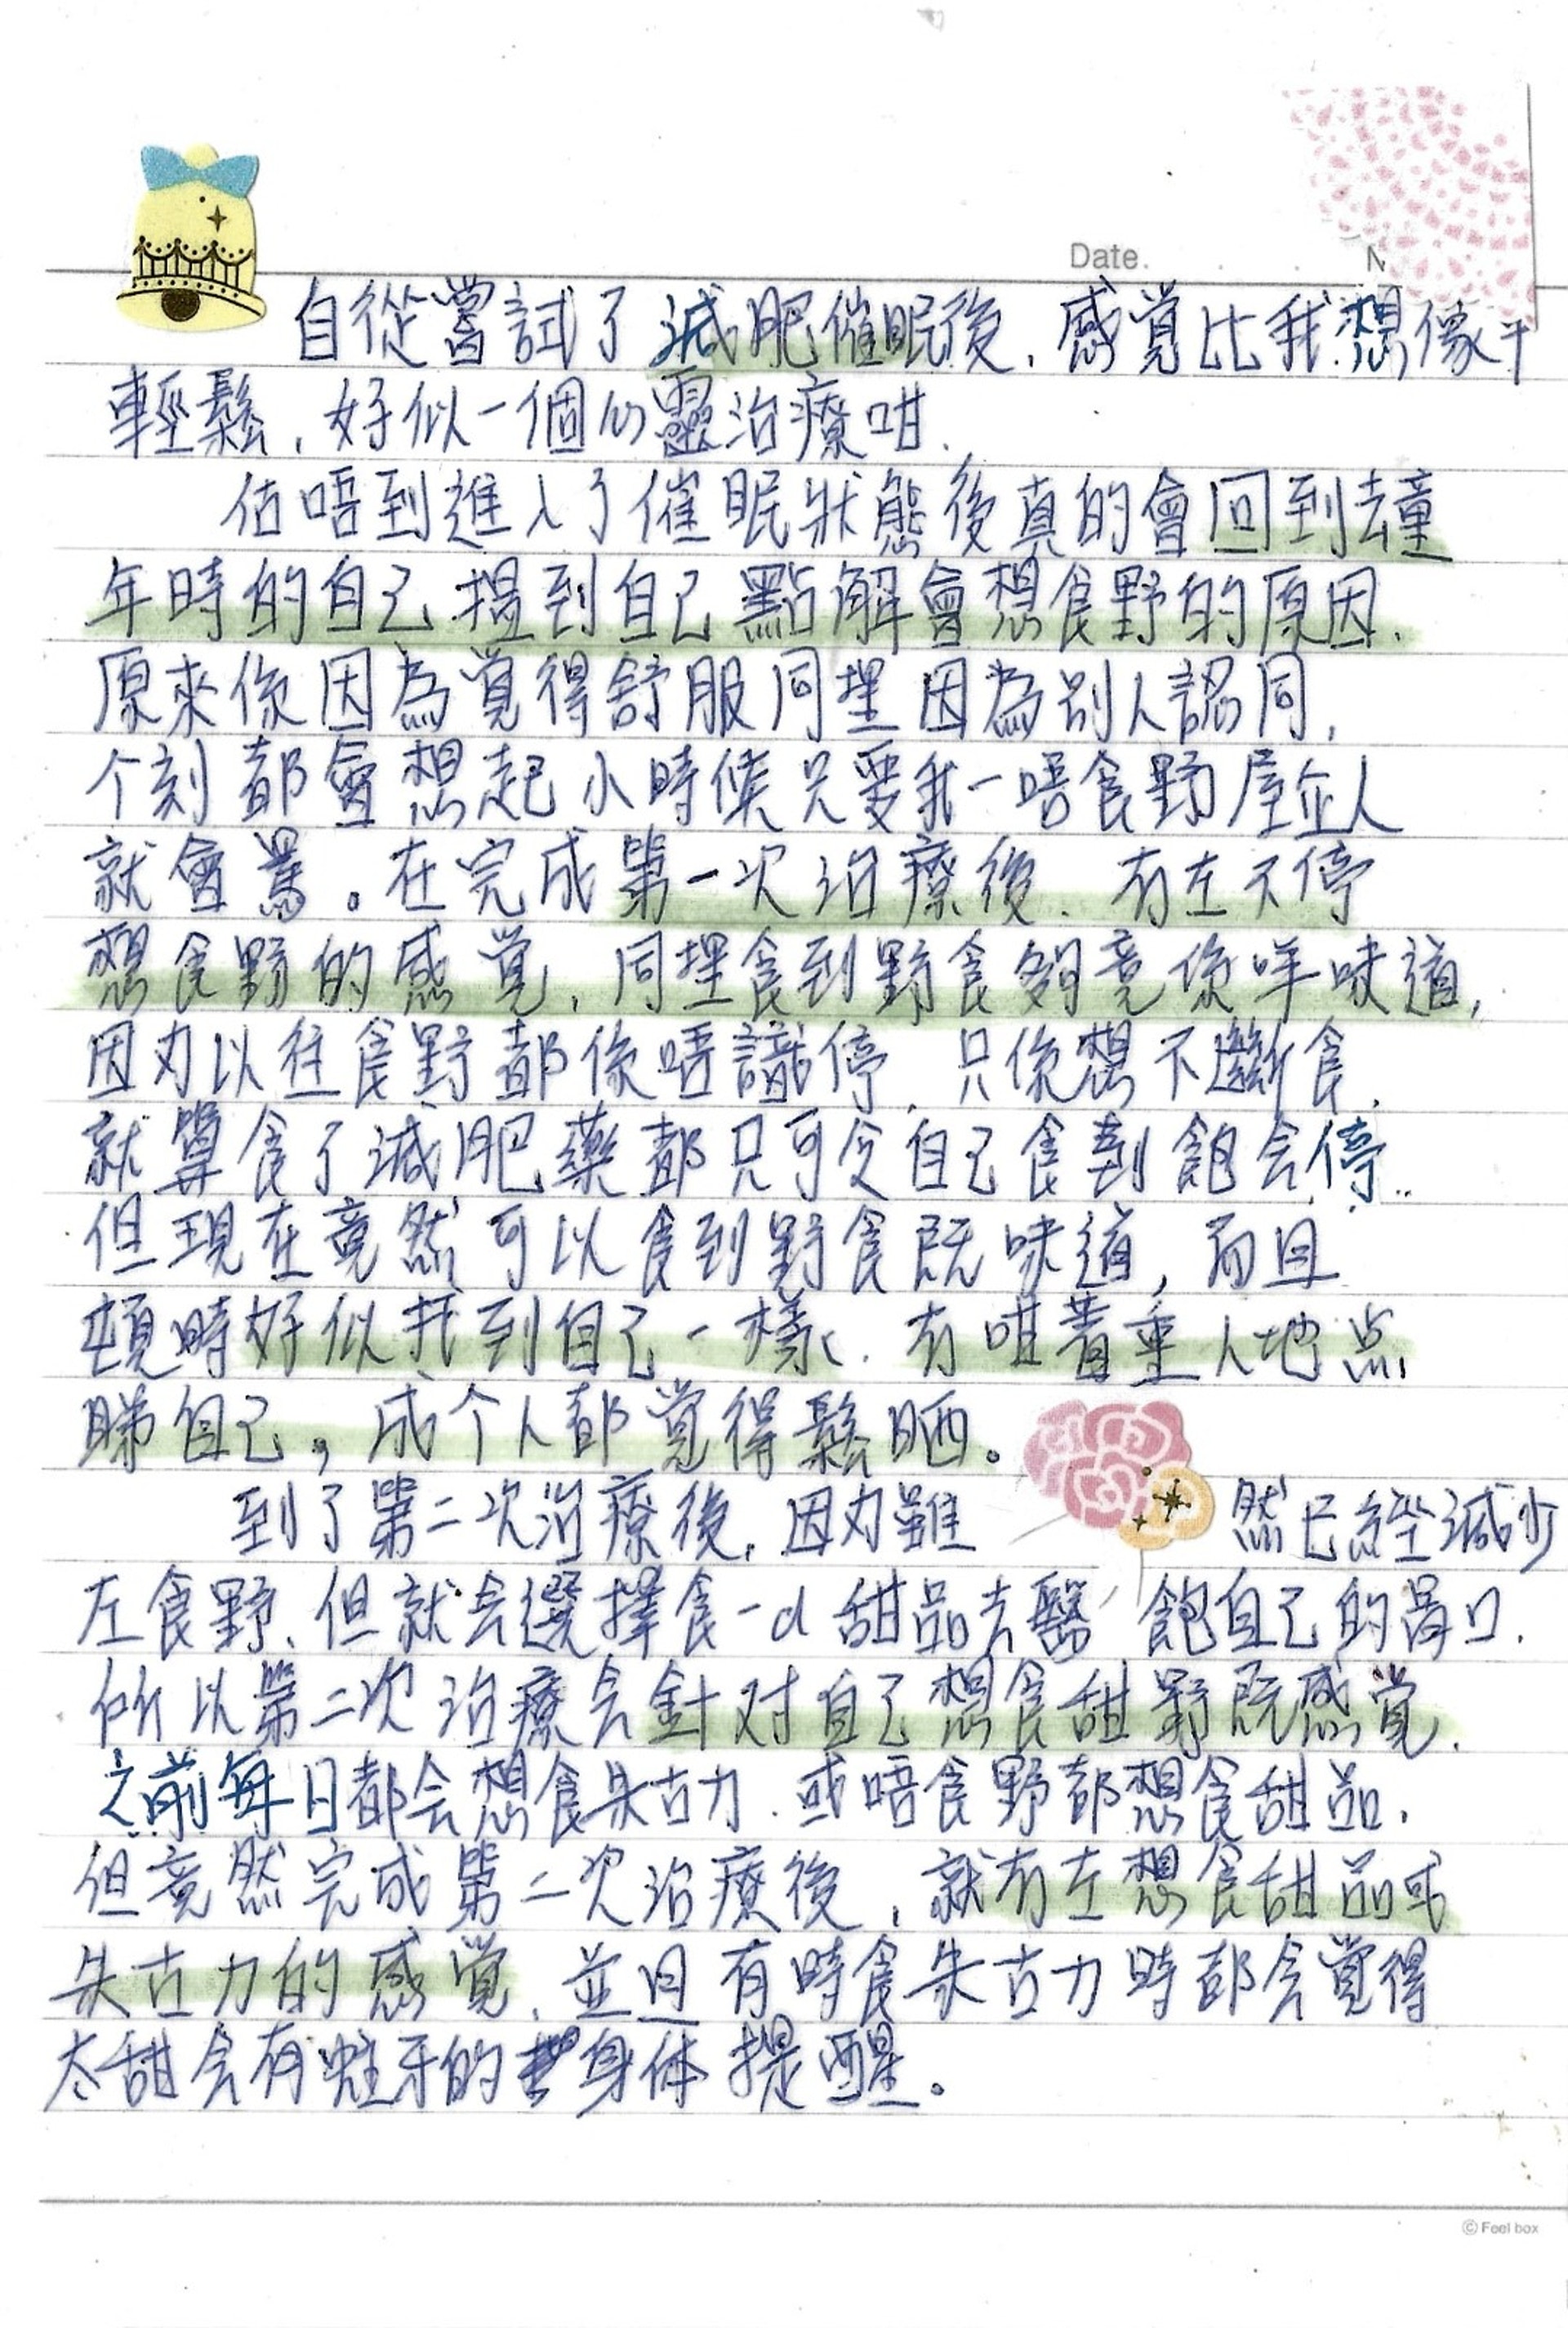 Date.
N
自從嘗試了減肥催眠後，感覺比我想像中
輕鬆，好似一個心靈治療咁.
估唔到進入了催眠狀態後真的會回到去童
年時的自己 搵到自己點解會想食野的原因.
原來係因為覺得舒服同埋因為別人認同,
个刻都會想起小時候只要我一唔食野屋企人
就會罵。在完成第一次治療後. 冇左不停
想食野的感覺, 同埋食到野食夠竟係咩味道,
因为以往食野都係唔識停, 只係想不斷食,
就算食了減肥藥都只可令自己食到飽会停..
但現在竟然可以食到野食既味道, 而且
頓時好似找到自己一樣, 冇咁著重人地点
睇自己, 成个人都覺得鬆晒。
到了第二次治療後, 因为雖然已經減少
左食野, 但就会選擇食一d甜品去醫飽自己的胃口.
所以第二次治療会針对自己想食甜野既感覺.
之前每日都会想食朱古力. 或唔食野都想食甜品.
但竟然完成第二次治療後, 就冇左想食甜品或
朱古力的感覺, 並且有時食朱古力時都会覺得
太甜会有蛀牙的身体提醒。
© Feel box